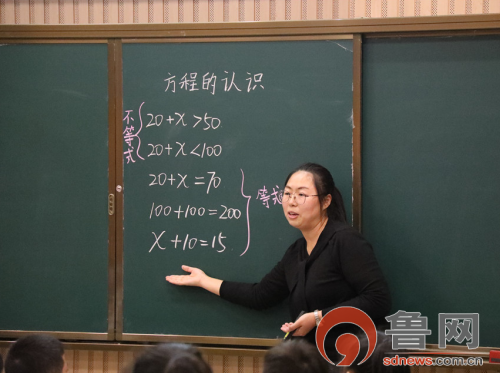 方程的认识
不等式
20+x>50
20+x<100
20+x=70
100+100=200
x+10=15
等式
鲁网
sdnews.com.cn